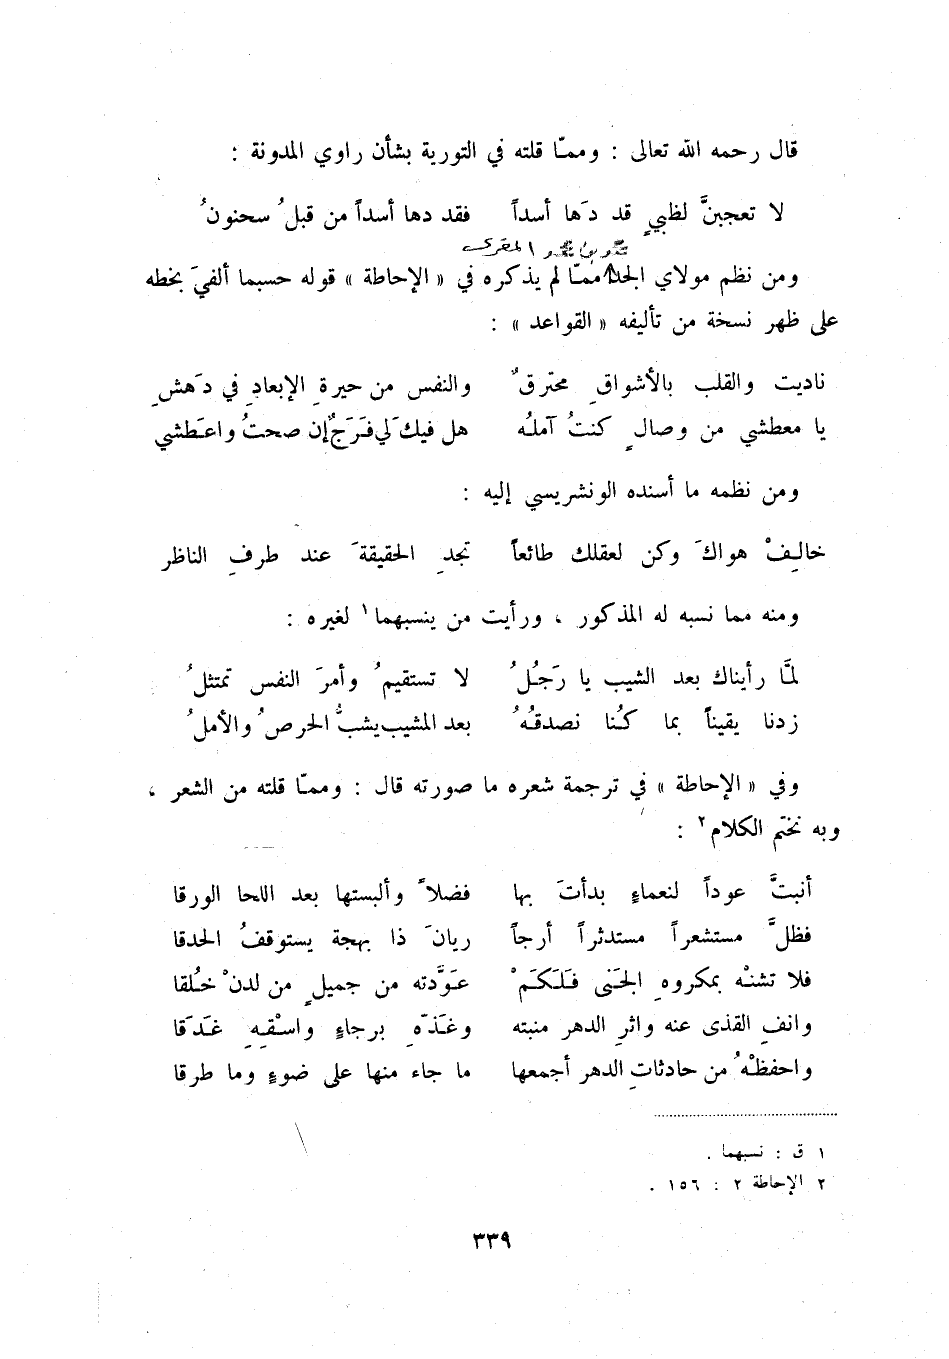 قال رحمه الله تعالى : وممّا قلته في التورية بشأن راوي المدونة :
لا تعجبنَّ لظبيٍ قد دَها أسداً فقد دها أسداً من قبلُ سحنونُ
محمد بن محمد المقري
ومن نظم مولاي الجد ممّا لم يذكره في « الإحاطة » قوله حسبما ألفيَ بخطه
على ظهر نسخة من تأليفه « القواعد » :
ناديت والقلب بالأشواقِ محترقٌ والنفس من حيرةِ الإبعادِ في دَهشِ
يا معطشي من وصالٍ كنتُ آملُه هل فيكَ لي فَرَجٌ إن صحتُ واعَطشي
ومن نظمه ما أسنده الونشريسي إليه :
خالِفْ هواكَ وكن لعقلك طائعاً تجدِ الحقيقةَ عند طرفِ الناظر
ومنه مما نسبه له المذكور ، ورأيت من ينسبهما١ لغيره :
لمَّا رأيناك بعد الشيب يا رَجُلُ لا تستقيمُ وأمرَ النفس تمتثلُ
زدنا يقيناً بما كُنا نصدقُهُ بعد المشيب يشبُّ الحرصُ والأملُ
وفي « الإحاطة » في ترجمة شعره ما صورته قال : وممّا قلته من الشعر ،
وبه نختم الكلام٢ :
أنبتَّ عوداً لنعماءٍ بدأتَ بها فضلاً وألبستها بعد اللحا الورقا
فظلَّ مستشعراً مستدثراً أرجاً ريانَ ذا بهجة يستوقفُ الحدقا
فلا تشنْه بمكروهِ الجَنى فَلَكَمْ عَوَّدته من جميلٍ من لدنْ خُلقا
وانفِ القذى عنه واثرِ الدهر منبته وغَذّهِ برجاءٍ واسْقِهِ غَدَقا
واحفظْهُ من حادثاتِ الدهر أجمعها ما جاء منها على ضوءٍ وما طرقا
١ ق : نسبهما .
٢ الإحاطة ٢ : ١٥٦ .
٣٣٩